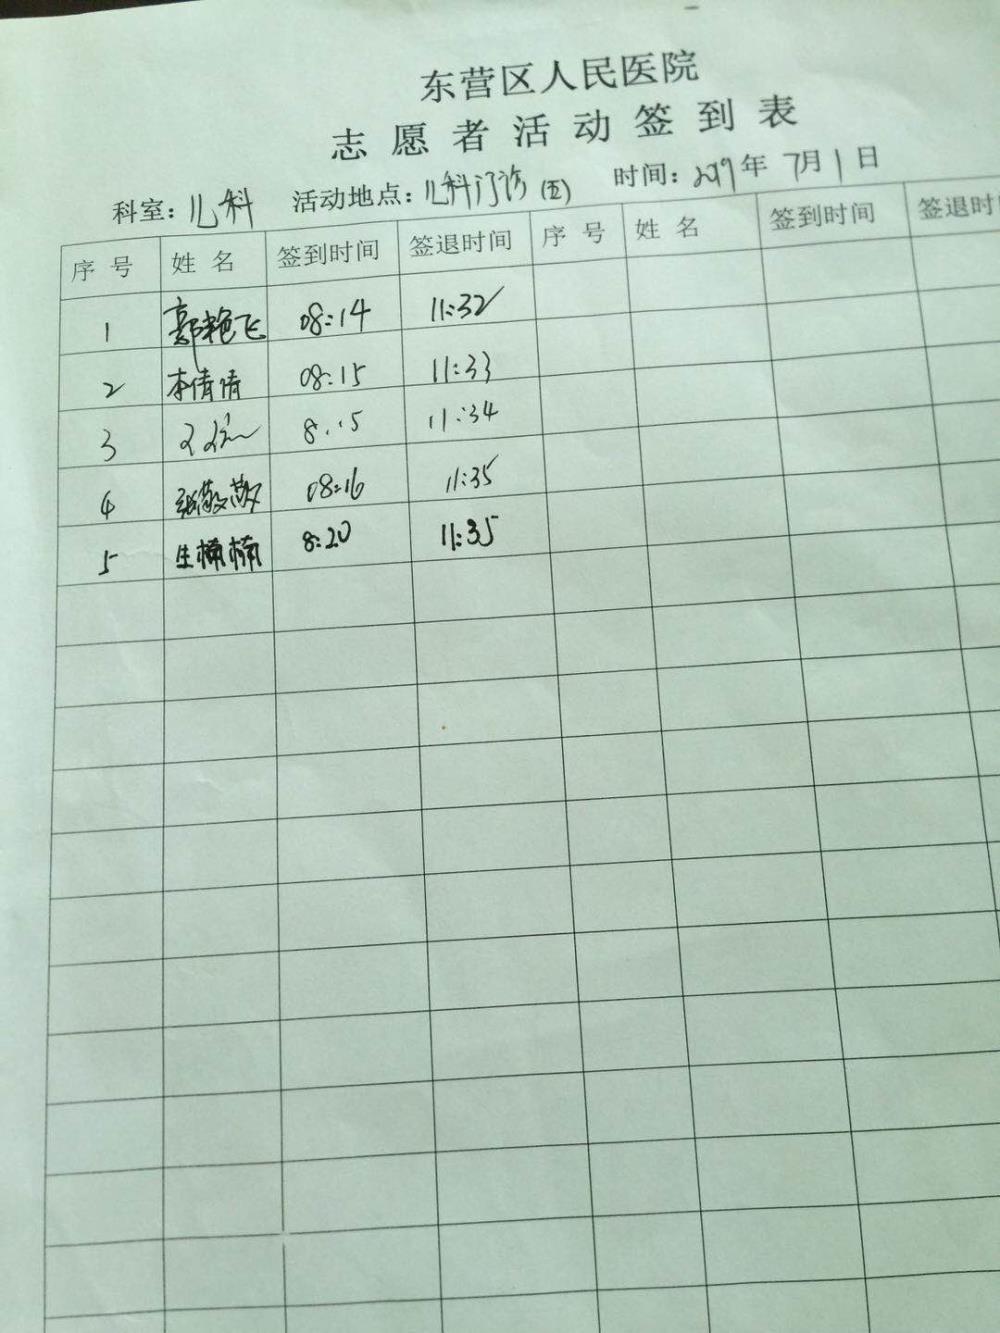 东营区人民医院
志愿者活动签到表
科室：儿科 活动地点：儿科门诊（五） 时间：2019年7月1日
序号 姓名 签到时间 签退时间 序号 姓名 签到时间 签退时
1 郭艳飞 08:14 11:32
2 李倩倩 08:15 11:33
3 8:15 11:34
4 张敬敬 08:16 11:35
5 生楠楠 8:20 11:35